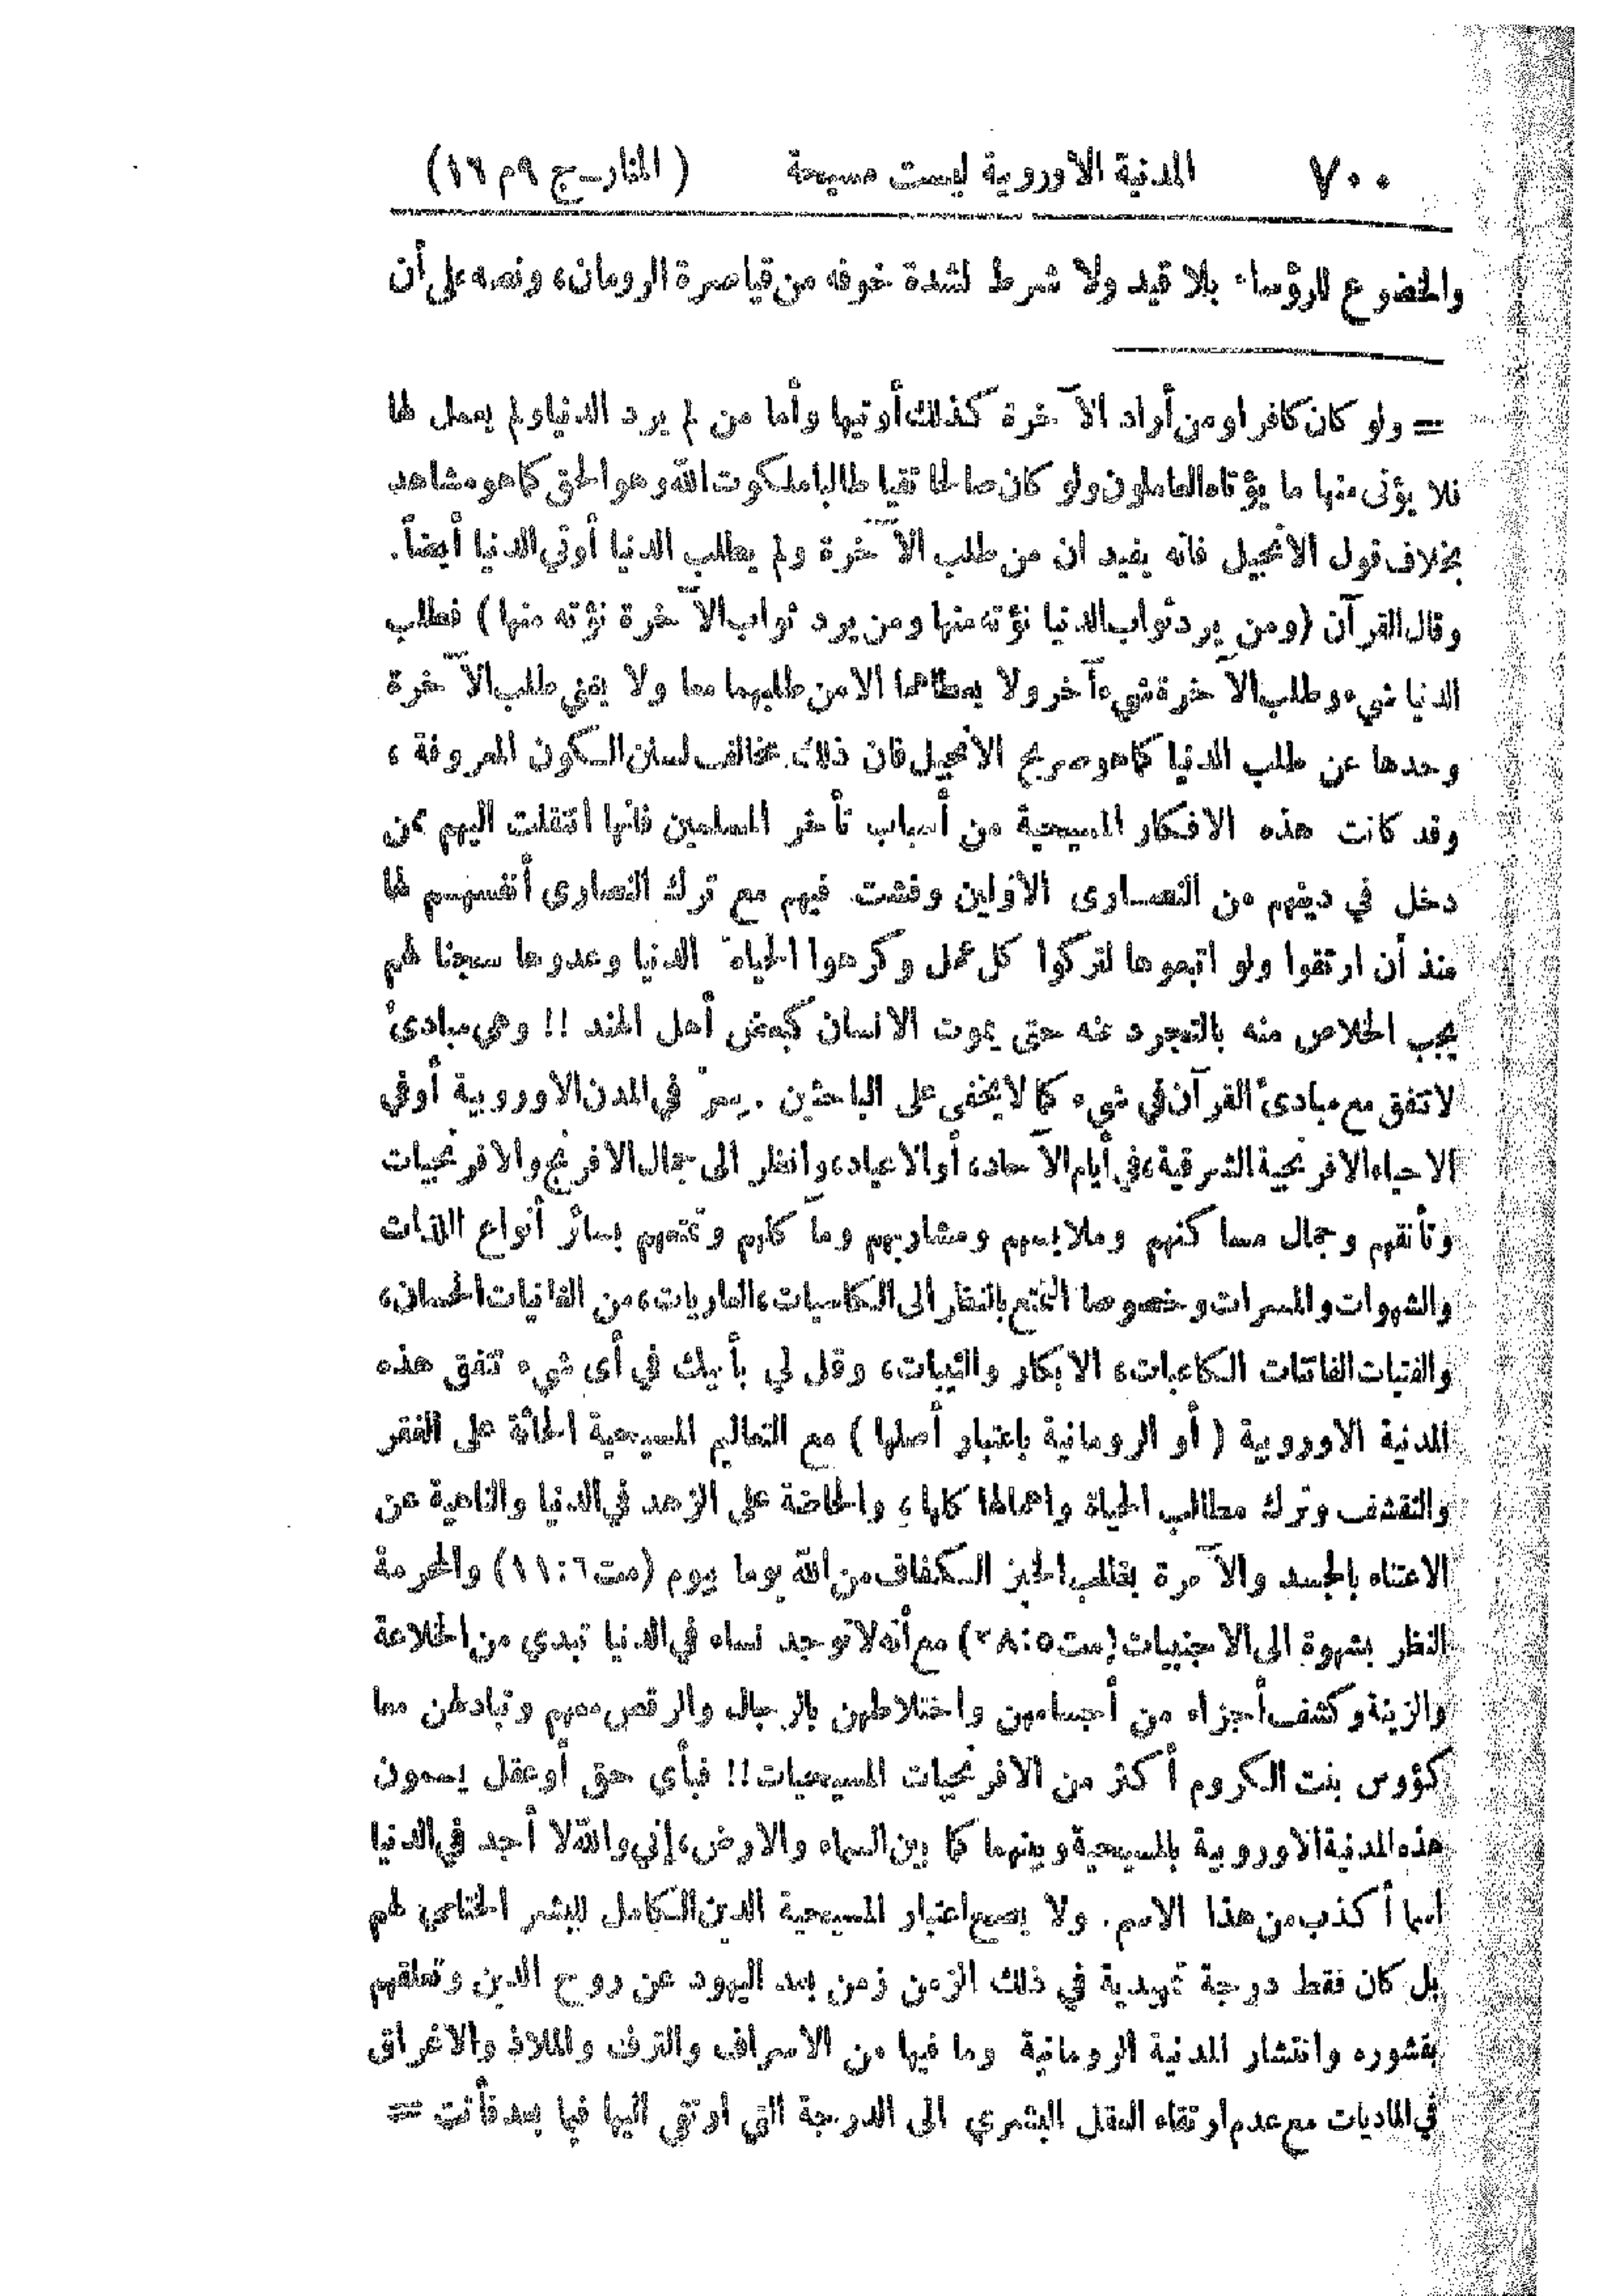 ٧٠٠ المدنية الاوروبية ليست مسيحة (المنار ـ ج ٩ م ١٦)
والخضوع للرؤساء بلا قيد ولا شرط لشدة خوفه من قياصرة الرومان، ونصه على أن
= ولو كان كافرا ومن أراد الآخرة كذلك أوتيها وأما من لم يرد الدنيا ولم يعمل لها
فلا يؤتى منها ما يؤتاه العاملون ولو كان صالحا تقيا طالبا ملكوت الله وهو الحق كما هو مشاهد
بخلاف قول الانجيل فانه يفيد ان من طلب الآخرة ولم يطلب الدنيا أوتي الدنيا أيضاً.
وقال القرآن (ومن يرد ثواب الدنيا نؤته منها ومن يرد ثواب الآخرة نؤته منها) فطلب
الدنيا شيء وطلب الآخرة شيء آخر ولا يعطاهما الا من طلبهما معا ولا يغني طلب الآخرة
وحدها عن طلب الدنيا كما هو صريح الانجيل فان ذلك مخالف لسنن الكون المعروفة،
وقد كانت هذه الافكار المسيحية من أسباب تأخر المسلمين فانها انتقلت اليهم ممن
دخل في دينهم من النصارى الاولين وفشت فيهم مع ترك النصارى أنفسهم لها
منذ أن ارتقوا ولو اتبعوها لتركوا كل عمل وكرهوا الحياة الدنيا وعدوها سجنا لهم
يجب الخلاص منه بالتجرد عنه حتى يموت الانسان كبعض أهل الهند !! وهي مبادئ
لا تتفق مع مبادئ القرآن في شيء كما لا يخفى على الباحثين . سر في المدن الاوروبية أو في
الاحياء الافرنجية الشرقية، في أيام الآحاد، أو الاعياد، وانظر الى جمال الافرنج والافرنجيات
وتأنقهم وجمال مساكنهم وملابسهم ومشاربهم ومآكلهم وتمتعهم بسائر أنواع اللذات
والشهوات والمسرات وخصوصا التمتع بالنظر الى الكاسيات، العاريات، من الغانيات الحسان،
والفتيات الفاتنات الكاعبات، الابكار والثيبات، وقل لي بأبيك في أى شيء تتفق هذه
المدنية الاوروبية (أو الرومانية باعتبار أصلها) مع التعاليم المسيحية الحاثة على الفقر
والتقشف وترك مطالب الحياة واهمالها كلها، والحاضة على الزهد في الدنيا والناهية عن
الاعتناء بالجسد والآمرة بطلب الخبز الكفاف من الله يوما بيوم (مت ٦ : ١١) والمحرمة
النظر بشهوة الى الاجنبيات (مت ٥ : ٢٨) مع أنه لا توجد نساء في الدنيا تبدي من الخلاعة
والزينة وكشف أجزاء من أجسامهن واختلاطهن بالرجال والرقص معهم وتبادلهن معا
كؤوس بنت الكروم أكثر من الافرنجيات المسيحيات!! فبأي حق أو عقل يسمون
هذه المدنية الاوروبية بالمسيحية وبينهما كما بين السماء والارض، إني والله لا أجد في الدنيا
اسما أكذب من هذا الاسم. ولا يصح اعتبار المسيحية الدين الكامل للبشر الختامي لهم
بل كان فقط درجة تمهيدية في ذلك الزمن زمن بعد اليهود عن روح الدين وتعلقهم
بقشوره وانتشار المدنية الرومانية وما فيها من الاسراف والترف والملاذ والاغراق
في الماديات مع عدم ارتقاء العقل البشري الى الدرجة التي ارتقى اليها فيما بعد فأتت =